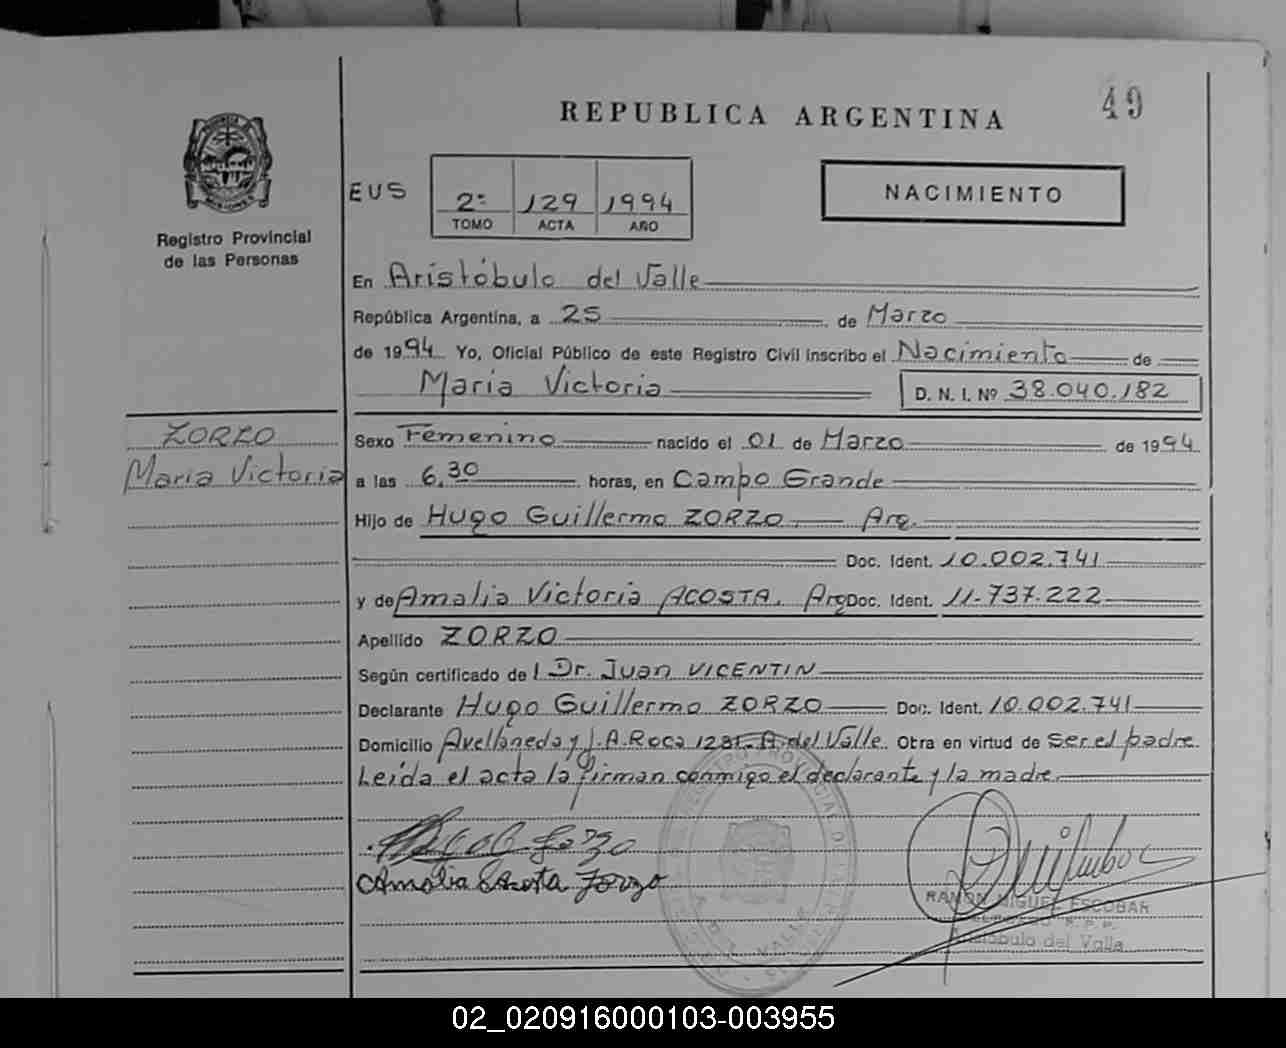 49
REPUBLICA ARGENTINA
NACIMIENTO
EUS
2º 129 1994
TOMO ACTA AÑO
Registro Provincial
de las Personas
En Aristóbulo del Valle
República Argentina, a 25 de Marzo
de 1994 Yo, Oficial Público de este Registro Civil inscribo el Nacimiento de
María Victoria D. N. I. Nº 38.040.182
ZORZO
María Victoria
Sexo Femenino nacido el 01 de Marzo de 1994
a las 6,30 horas, en Campo Grande
Hijo de Hugo Guillermo ZORZO. Arg.
Doc. Ident. 10.002.741
y de Amalia Victoria ACOSTA. Arg Doc. Ident. 11-737.222
Apellido ZORZO
Según certificado de l Dr. Juan VICENTIN
Declarante Hugo Guillermo ZORZO Doc. Ident. 10.002.741
Domicilio Avellaneda y J. A. Roca 1231. A. del Valle. Obra en virtud de ser el padre.
Leída el acta la firman conmigo el declarante y la madre.
Zorzo
Amalia Acosta Zorzo
RAMON MIGUEL ESCOBAR
R.P.P.
Aristóbulo del Valle
REGISTRO PROVINCIAL DE LAS PERSONAS
02_020916000103-003955